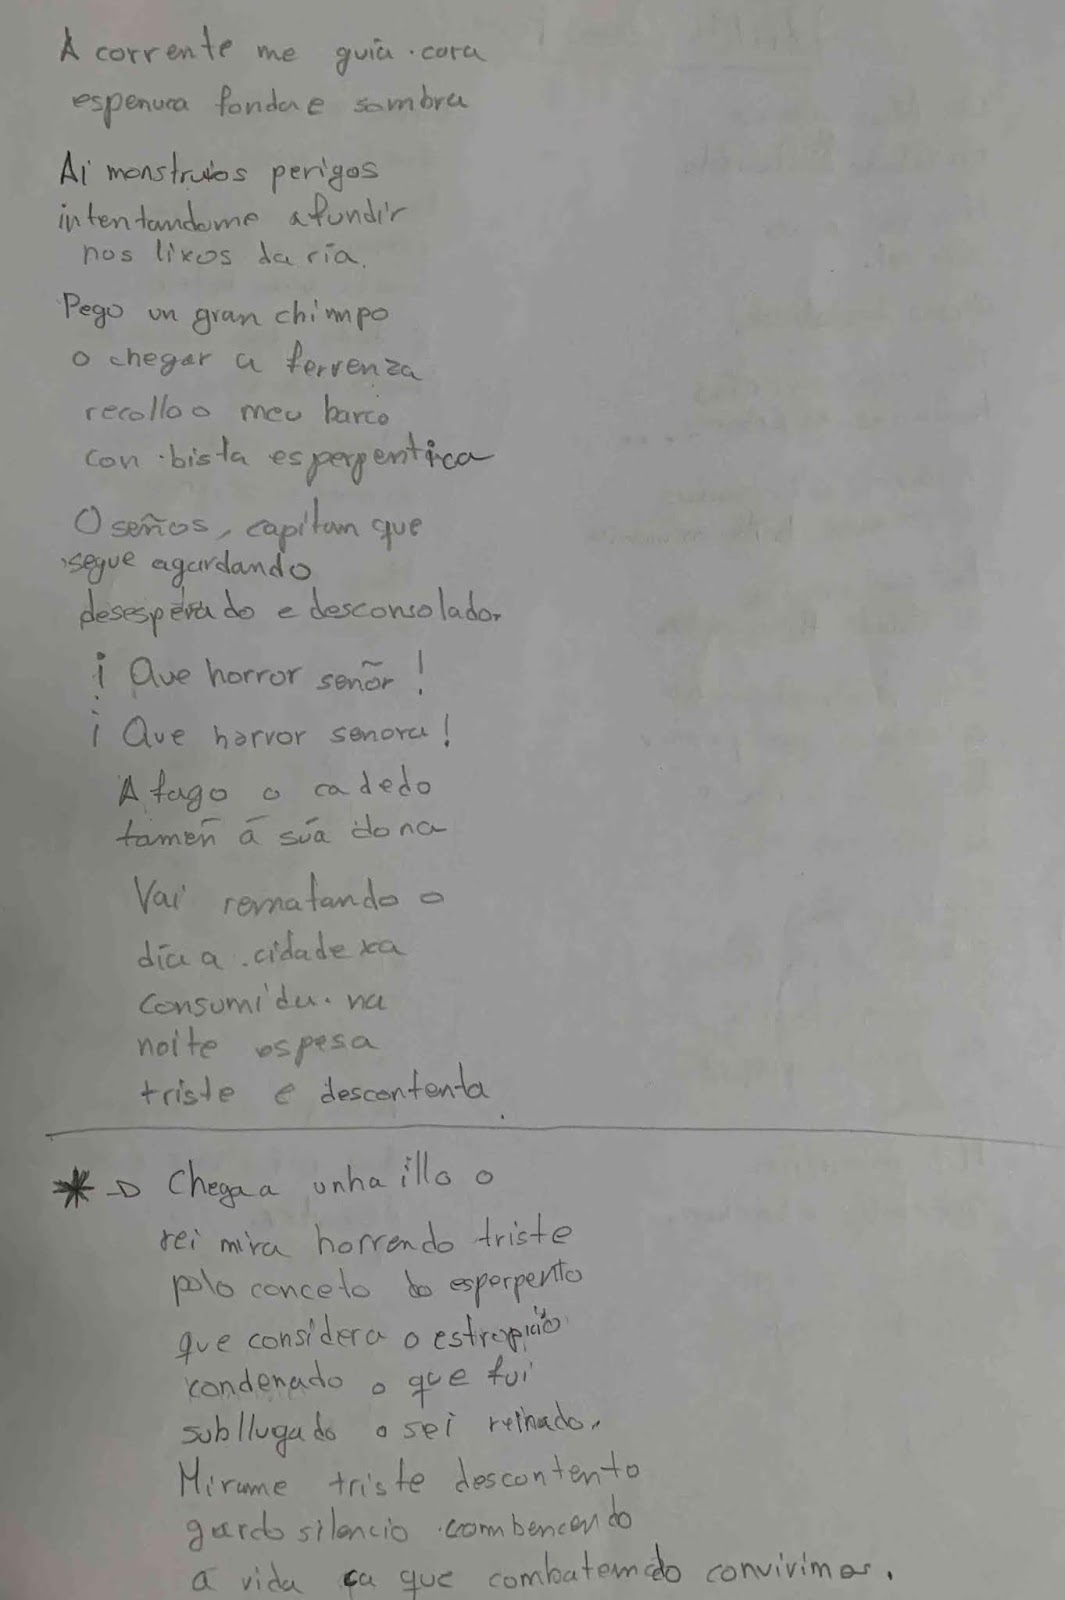 A corrente me guía cara
espenura fonda e sombra
Ai monstruios perigos
intentandome afundir
nos lixos da ría.
Pego un gran chimpo
o chegar a ferrenza
recollo o meu barco
con bista esperpentica
O seños, capitan que
segue agardando
desesperado e desconsolador
¡ Que horror señor !
¡ Que horror senora !
Afago o cadedo
tameñ á súa dona
Vai rematando o
día a cidade xa
consumida na
noite espesa
triste e descontenta.
* → Chega a unha illa o
rei mira horrendo triste
polo conceto do esperpento
que considera o estropicio
condenado o que fui
subllugado o sei reinado.
Mirame triste descontento
gardo silencio combencendo
a vida ca que combatemdo convivimos.